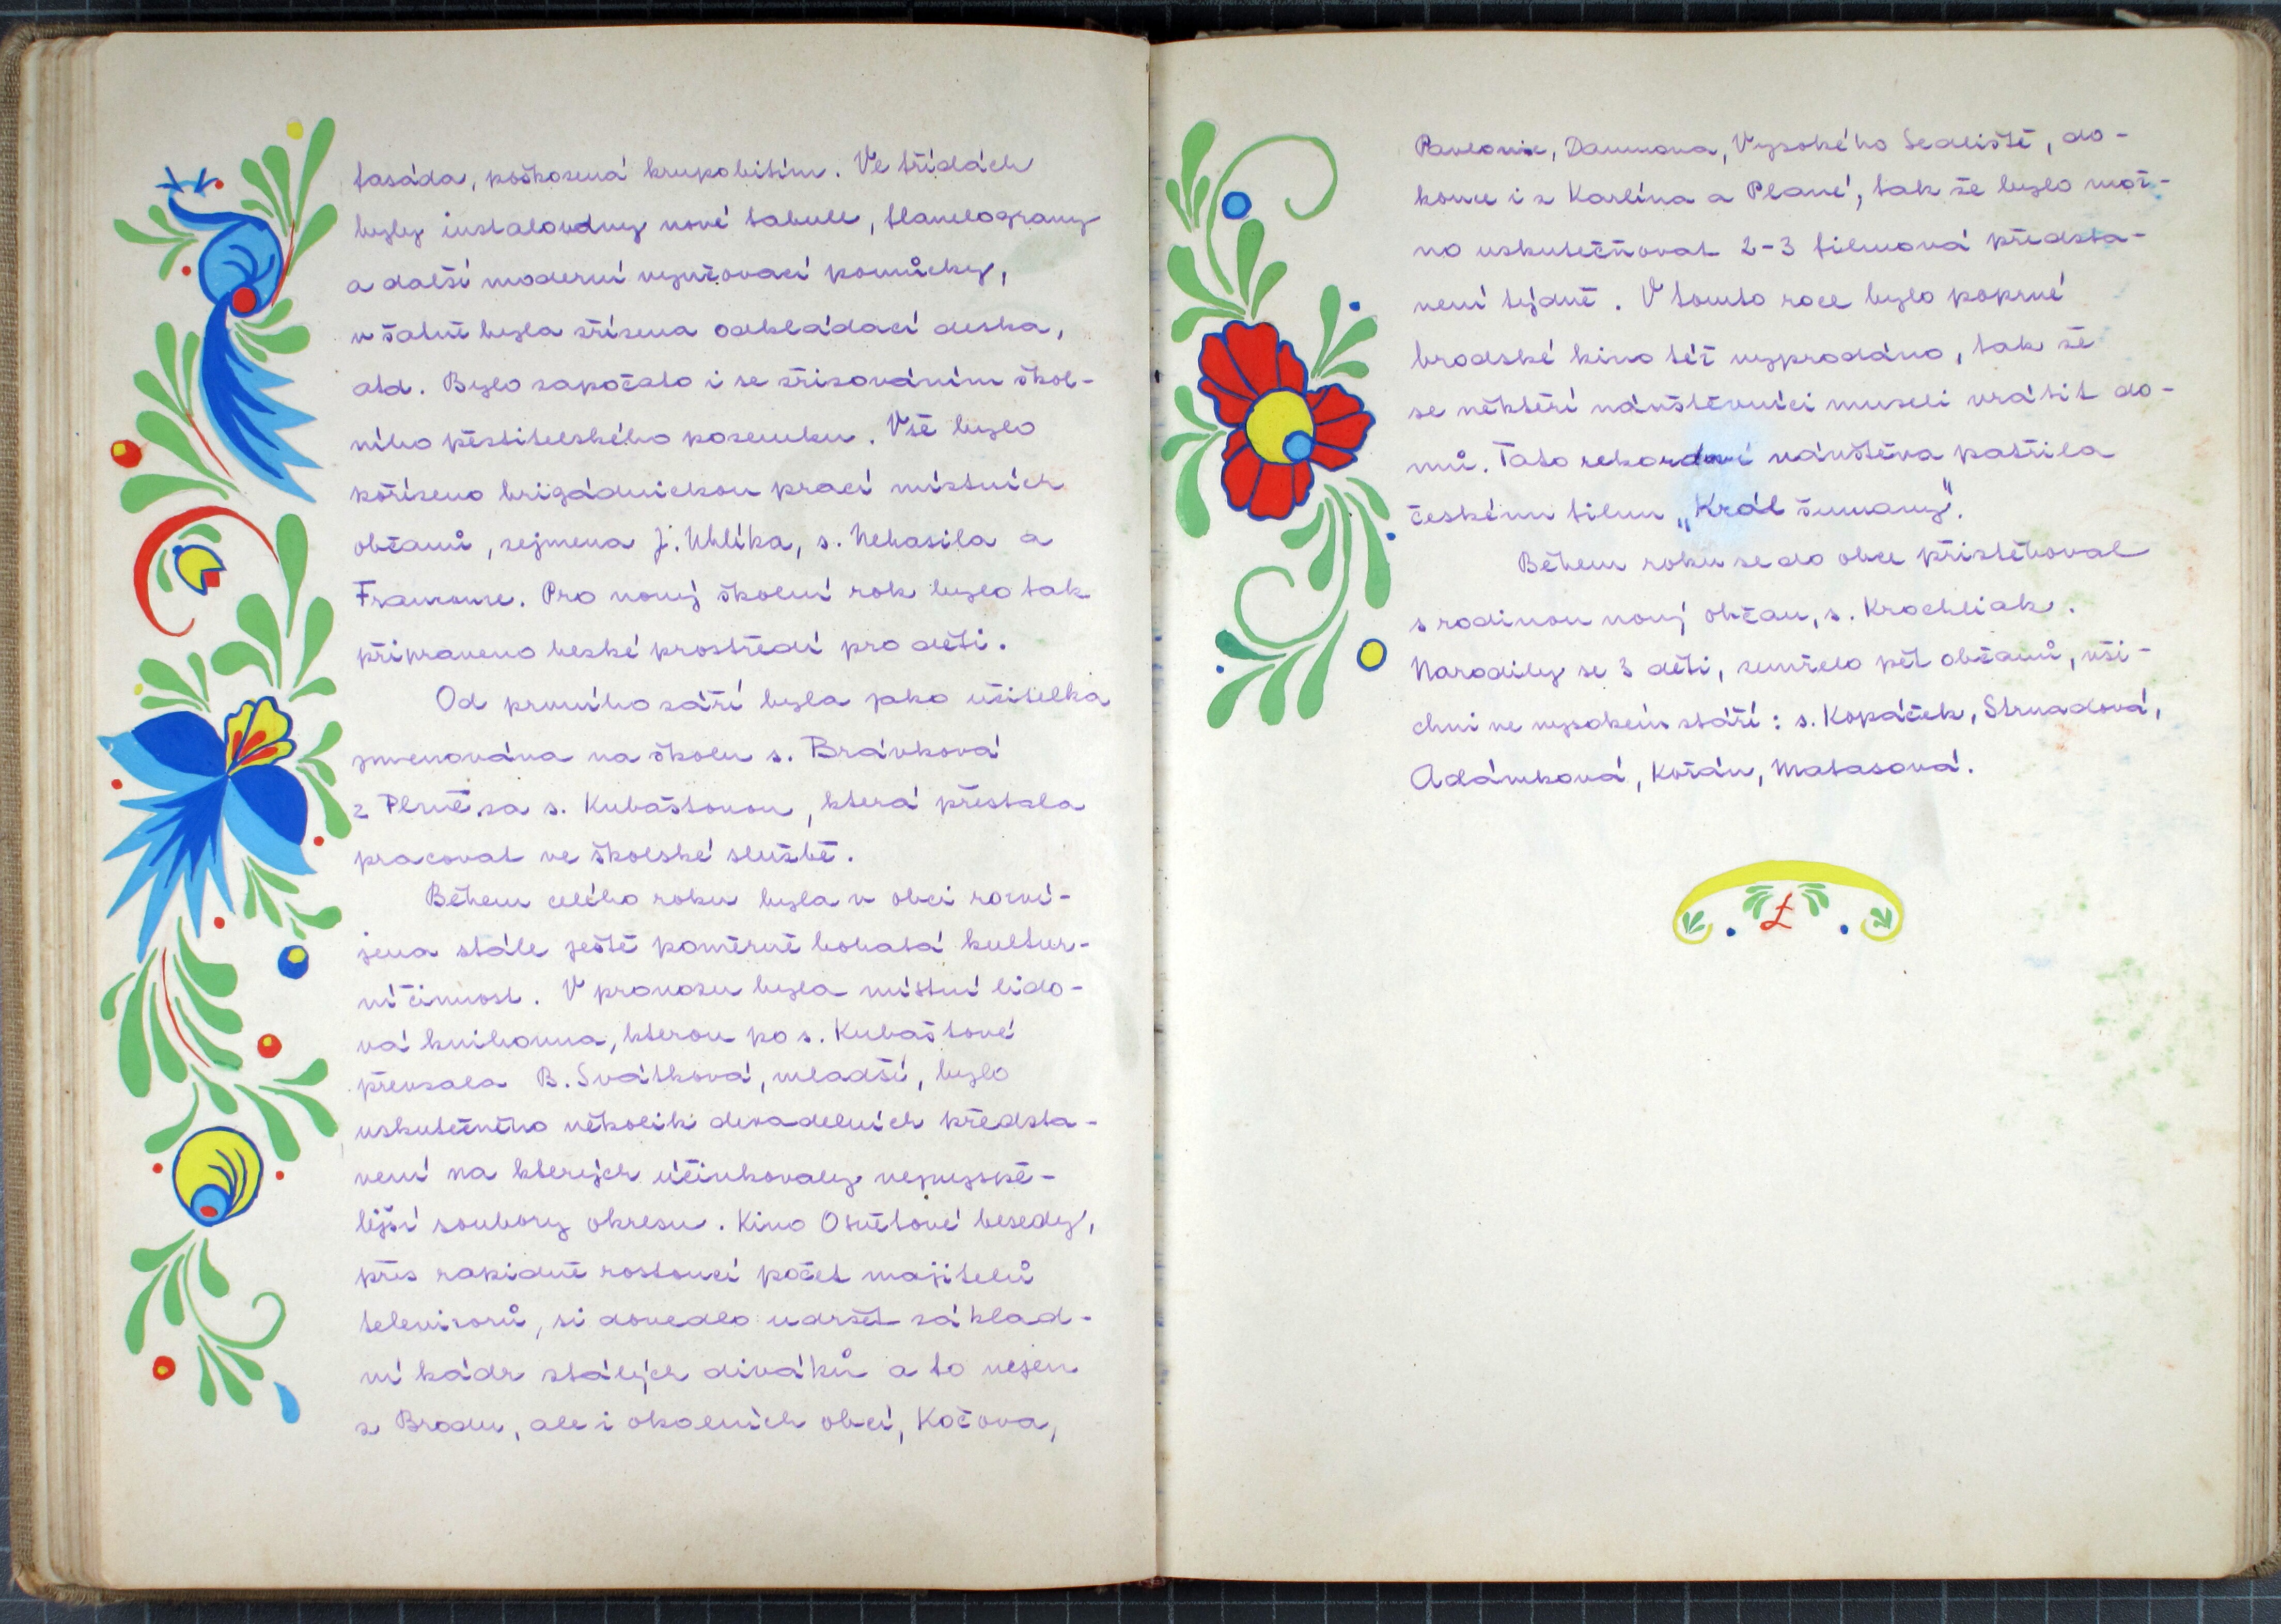 fasáda, poškozená krupobitím. Ve třídách
byly instalovány nové tabule, flanelogramy
a další moderní vyučovací pomůcky,
v šatně byla zřízena odkládací deska,
atd. Bylo započato i se zřizováním škol-
ního pěstitelského pozemku. Vše bylo
pořízeno brigádnickou prací místních
občanů, zejmena J. Uhlíka, s. Nehasila a
Francouze. Pro nový školní rok bylo tak
připraveno hezké prostředí pro děti.
Od prvního září byla jako učitelka
jmenována na školu s. Brávková
z Plané za s. Kubaštovou, která přestala
pracovat ve školské službě.
Během celého roku byla v obci rozví-
jena stále ještě poměrně bohatá kultur-
ní činnost. V provozu byla místní lido-
vá knihovna, kterou po s. Kubaštové
převzala B. Svátková, mladší, bylo
uskutečněno několik divadelních předsta-
vení na kterých účinkovaly nejvyspě-
lejší soubory okresu. Kino Osvětové besedy,
přes rapidně rostoucí počet majitelů
televizorů, si dovedlo udržet základ-
ní kádr stálých diváků a to nejen
z Brodu, ale i okolních obcí, Kočova,
Pavlovic, Damnova, Vysokého Sedliště, do-
konce i z Karlína a Plané, tak že bylo mož-
no uskutečňovat 2-3 filmová předsta-
vení týdně. V tomto roce bylo poprvé
brodské kino též vyprodáno, tak že
se někteří návštěvníci museli vrátit do-
mů. Tato rekordní návštěva patřila
českému filmu „Král šumavy".
Během roku se do obce přistěhoval
s rodinou nový občan, s. Krochliak.
Narodily se 3 děti, zemřelo pět občanů, vši-
chni ve vysokém stáří: s. Kopáček, Strnadová,
Adámková, Kořán, Matasová.